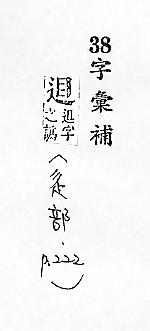 38字彙補
迌 迌字之譌
(辵部.
p.222)